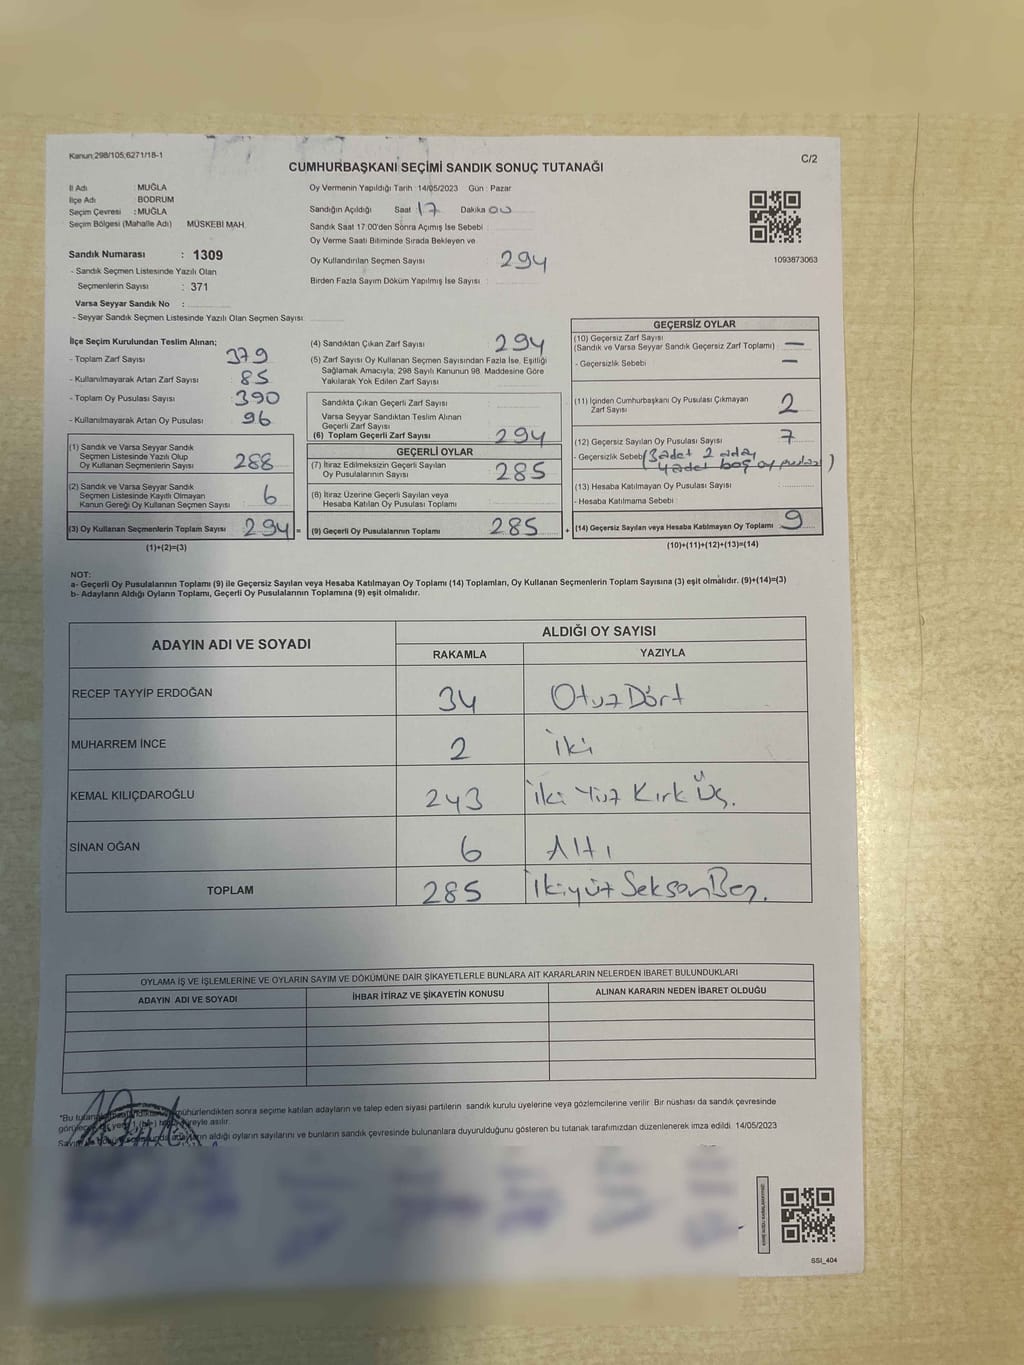 Kanun:298/105,6271/18-1
C/2
CUMHURBAŞKANI SEÇİMİ SANDIK SONUÇ TUTANAĞI
İl Adı : MUĞLA
İlçe Adı : BODRUM
Seçim Çevresi : MUĞLA
Seçim Bölgesi (Mahalle Adı) MÜSKEBİ MAH.
Sandık Numarası : 1309
- Sandık Seçmen Listesinde Yazılı Olan
Seçmenlerin Sayısı : 371
Varsa Seyyar Sandık No :
- Seyyar Sandık Seçmen Listesinde Yazılı Olan Seçmen Sayısı:
Oy Vermenin Yapıldığı Tarih :14/05/2023 Gün : Pazar
Sandığın Açıldığı Saat 17 Dakika 00
Sandık Saat 17.00'den Sonra Açımış İse Sebebi :
Oy Verme Saati Bitiminde Sırada Bekleyen ve
Oy Kullandırılan Seçmen Sayısı 294
Birden Fazla Sayım Döküm Yapılmış İse Sayısı :
1093873063
İlçe Seçim Kurulundan Teslim Alınan;
- Toplam Zarf Sayısı 379
- Kullanılmayarak Artan Zarf Sayısı 85
- Toplam Oy Pusulası Sayısı 390
- Kullanılmayarak Artan Oy Pusulası 96
(1) Sandık ve Varsa Seyyar Sandık
Seçmen Listesinde Yazılı Olup
Oy Kullanan Seçmenlerin Sayısı 288
(2) Sandık ve Varsa Seyyar Sandık
Seçmen Listesinde Kayıtlı Olmayan
Kanun Gereği Oy Kullanan Seçmen Sayısı 6
(3) Oy Kullanan Seçmenlerin Toplam Sayısı 294 =
(1)+(2)=(3)
(4) Sandıktan Çıkan Zarf Sayısı 294
(5) Zarf Sayısı Oy Kullanan Seçmen Sayısından Fazla İse, Eşitliği
Sağlamak Amacıyla; 298 Sayılı Kanunun 98. Maddesine Göre
Yakılarak Yok Edilen Zarf Sayısı
Sandıkta Çıkan Geçerli Zarf Sayısı
Varsa Seyyar Sandıktan Teslim Alınan
Geçerli Zarf Sayısı
(6) Toplam Geçerli Zarf Sayısı 294
GEÇERLİ OYLAR
(7) İtiraz Edilmeksizin Geçerli Sayılan
Oy Pusulalarının Sayısı 285
(8) İtiraz Üzerine Geçerli Sayılan veya
Hesaba Katılan Oy Pusulası Toplamı
(9) Geçerli Oy Pusulalarının Toplamı 285 +
GEÇERSİZ OYLAR
(10) Geçersiz Zarf Sayısı
(Sandık ve Varsa Seyyar Sandık Geçersiz Zarf Toplamı) —
- Geçersizlik Sebebi —
(11) İçinden Cumhurbaşkanı Oy Pusulası Çıkmayan
Zarf Sayısı 2
(12) Geçersiz Sayılan Oy Pusulası Sayısı 7
- Geçersizlik Sebebi (3 adet 2 aday
4 adet boş oy pusulası)
(13) Hesaba Katılmayan Oy Pusulası Sayısı
- Hesaba Katılmama Sebebi
(14) Geçersiz Sayılan veya Hesaba Katılmayan Oy Toplamı 9
(10)+(11)+(12)+(13)=(14)
NOT:
a- Geçerli Oy Pusulalarının Toplamı (9) ile Geçersiz Sayılan veya Hesaba Katılmayan Oy Toplamı (14) Toplamları, Oy Kullanan Seçmenlerin Toplam Sayısına (3) eşit olmalıdır. (9)+(14)=(3)
b- Adayların Aldığı Oyların Toplamı, Geçerli Oy Pusulalarının Toplamına (9) eşit olmalıdır.
ADAYIN ADI VE SOYADI ALDIĞI OY SAYISI
RAKAMLA YAZIYLA
RECEP TAYYİP ERDOĞAN 34 Otuz Dört
MUHARREM İNCE 2 İki
KEMAL KILIÇDAROĞLU 243 İki Yüz Kırk Üç.
SİNAN OĞAN 6 Altı
TOPLAM 285 İkiyüz Seksen Beş.
OYLAMA İŞ VE İŞLEMLERİNE VE OYLARIN SAYIM VE DÖKÜMÜNE DAİR ŞİKAYETLERLE BUNLARA AİT KARARLARIN NELERDEN İBARET BULUNDUKLARI
ADAYIN ADI VE SOYADI İHBAR İTİRAZ VE ŞİKAYETİN KONUSU ALINAN KARARIN NEDEN İBARET OLDUĞU
*Bu mühürlendikten sonra seçime katılan adayların ve talep eden siyasi partilerin sandık kurulu üyelerine veya gözlemcilerine verilir. Bir nüshası da sandık çevresinde
asılır.
aldığı oyların sayılarını ve bunların sandık çevresinde bulunanlara duyurulduğunu gösteren bu tutanak tarafımızdan düzenlenerek imza edildi. 14/05/2023
SSI_404